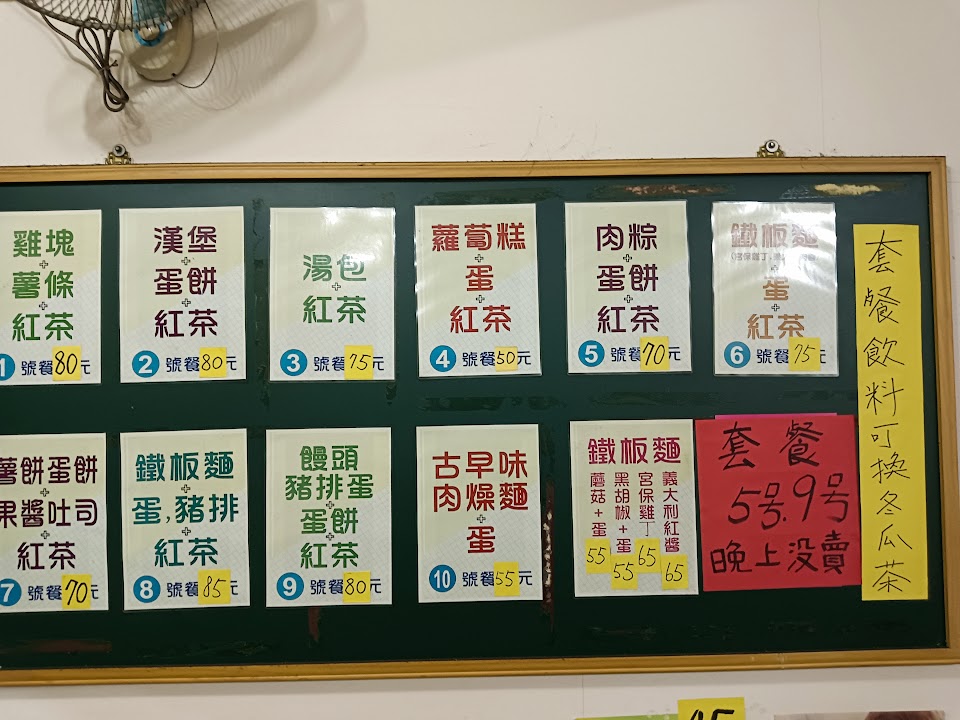 雞塊
+
薯條
+
紅茶
1 號餐80元
漢堡
+
蛋餅
+
紅茶
2 號餐80元
湯包
+
紅茶
3 號餐75元
蘿蔔糕
+
蛋
+
紅茶
4 號餐50元
肉粽
+
蛋餅
+
紅茶
5 號餐70元
鐵板麵
+
蛋
+
紅茶
6 號餐75元
套餐飲料可換冬瓜茶
薯餅蛋餅
+
果醬吐司
+
紅茶
7 號餐70元
鐵板麵
+
蛋,豬排
+
紅茶
8 號餐85元
饅頭
豬排蛋
+
蛋餅
+
紅茶
9 號餐80元
古早味
肉燥麵
+
蛋
10 號餐55元
鐵板麵
蘑菇+蛋 55
黑胡椒+蛋 55
宮保雞丁 65
義大利紅醬 65
套餐
5号.9号
晚上没賣